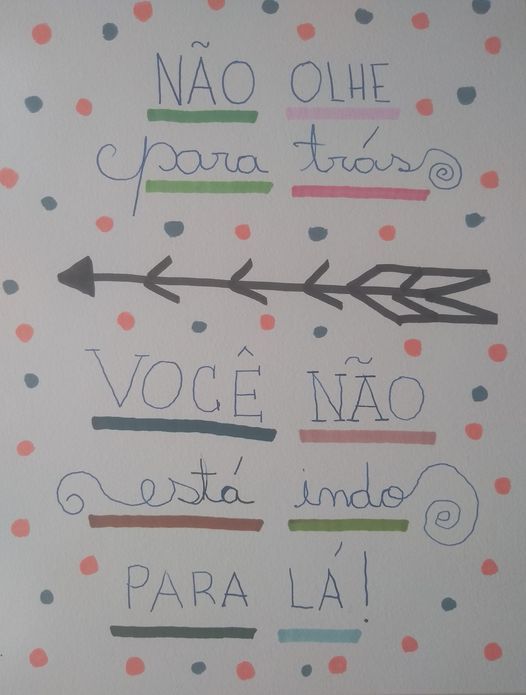 NÃO OLHE
para trás
VOCÊ NÃO
está indo
PARA LÁ!